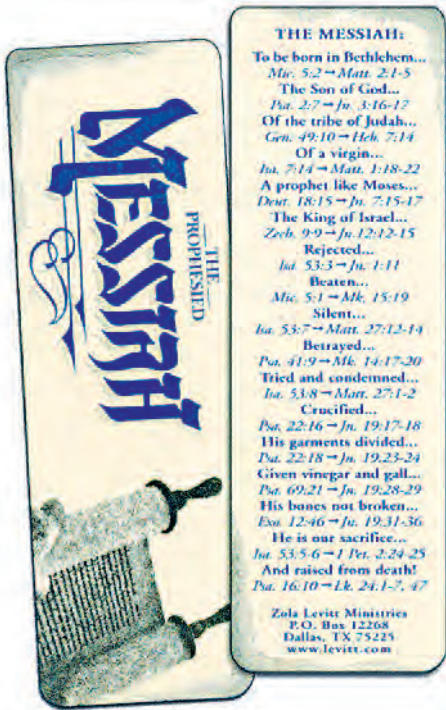 THE
PROPHESIED
MESSIAH
THE MESSIAH:
To be born in Bethlehem...
Mic. 5:2→Matt. 2:1-5
The Son of God...
Psa. 2:7→Jn. 3:16-17
Of the tribe of Judah...
Gen. 49:10→Heb. 7:14
Of a virgin...
Isa. 7:14→Matt. 1:18-22
A prophet like Moses...
Deut. 18:15→Jn. 7:15-17
The King of Israel...
Zech. 9:9→Jn. 12:12-15
Rejected...
Isa. 53:3→Jn. 1:11
Beaten...
Mic. 5:1→Mk. 15:19
Silent...
Isa. 53:7→Matt. 27:12-14
Betrayed...
Psa. 41:9→Mk. 14:17-20
Tried and condemned...
Isa. 53:8→Matt. 27:1-2
Crucified...
Psa. 22:16→Jn. 19:17-18
His garments divided...
Psa. 22:18→Jn. 19:23-24
Given vinegar and gall...
Psa. 69:21→Jn. 19:28-29
His bones not broken...
Exo. 12:46→Jn. 19:31-36
He is our sacrifice...
Isa. 53:5-6→1 Pet. 2:24-25
And raised from death!
Psa. 16:10→Lk. 24:1-7, 47
Zola Levitt Ministries
P.O. Box 12268
Dallas, TX 75225
www.levitt.com